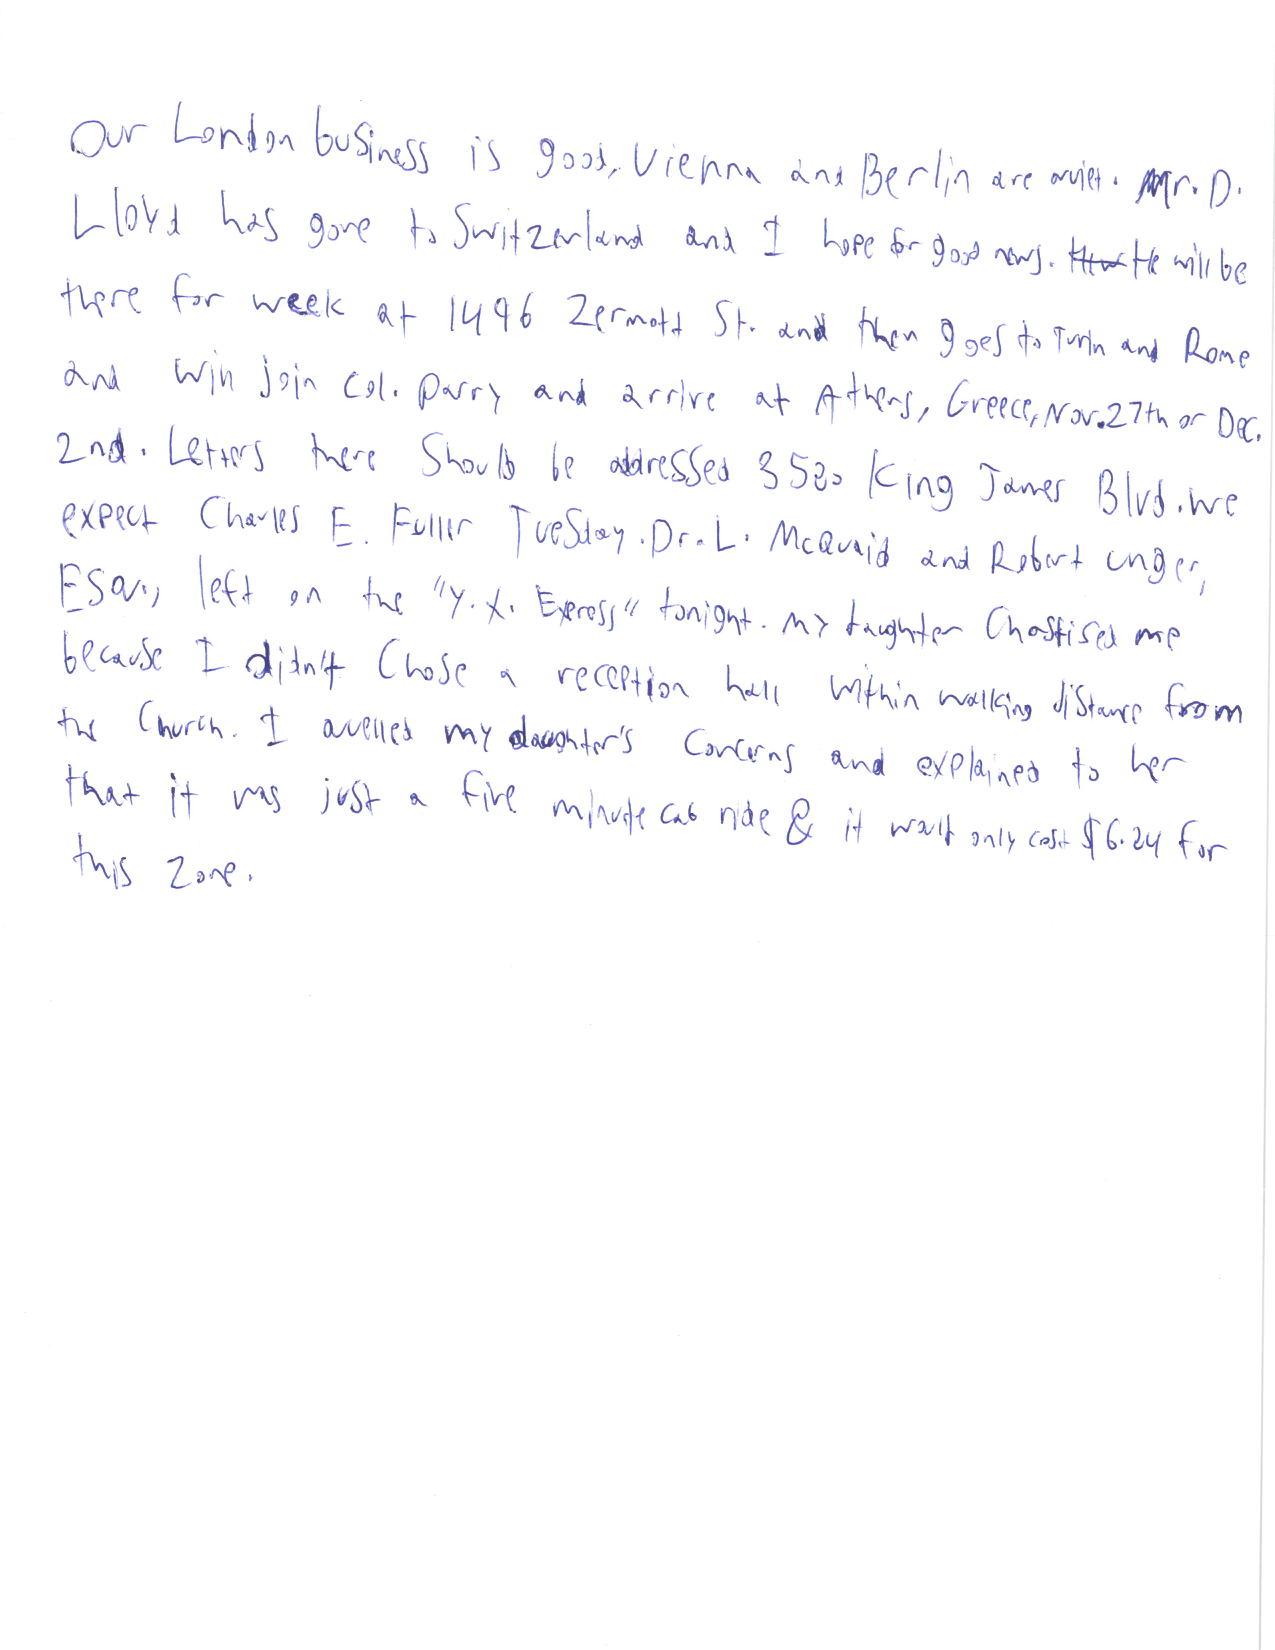 Our London business is good, Vienna and Berlin are quiet. Mr. D.
Lloyd has gone to Switzerland and I hope for good news. He will be
there for week at 1496 Zermott St. and then goes to Turin and Rome
and will join Col. Parry and arrive at Athens, Greece, Nov. 27th or Dec.
2nd. Letters there should be addressed 3580 King James Blvd. We
expect Charles E. Fuller Tuesday. Dr. L. McQuaid and Robert Unger,
Esq., left on the "Y. X. Express" tonight. My daughter chastised me
because I didn't chose a reception hall within walking distance from
the church. I quelled my daughter's concerns and explained to her
that it was just a five minute cab ride & it would only cost $6.24 for
this zone.